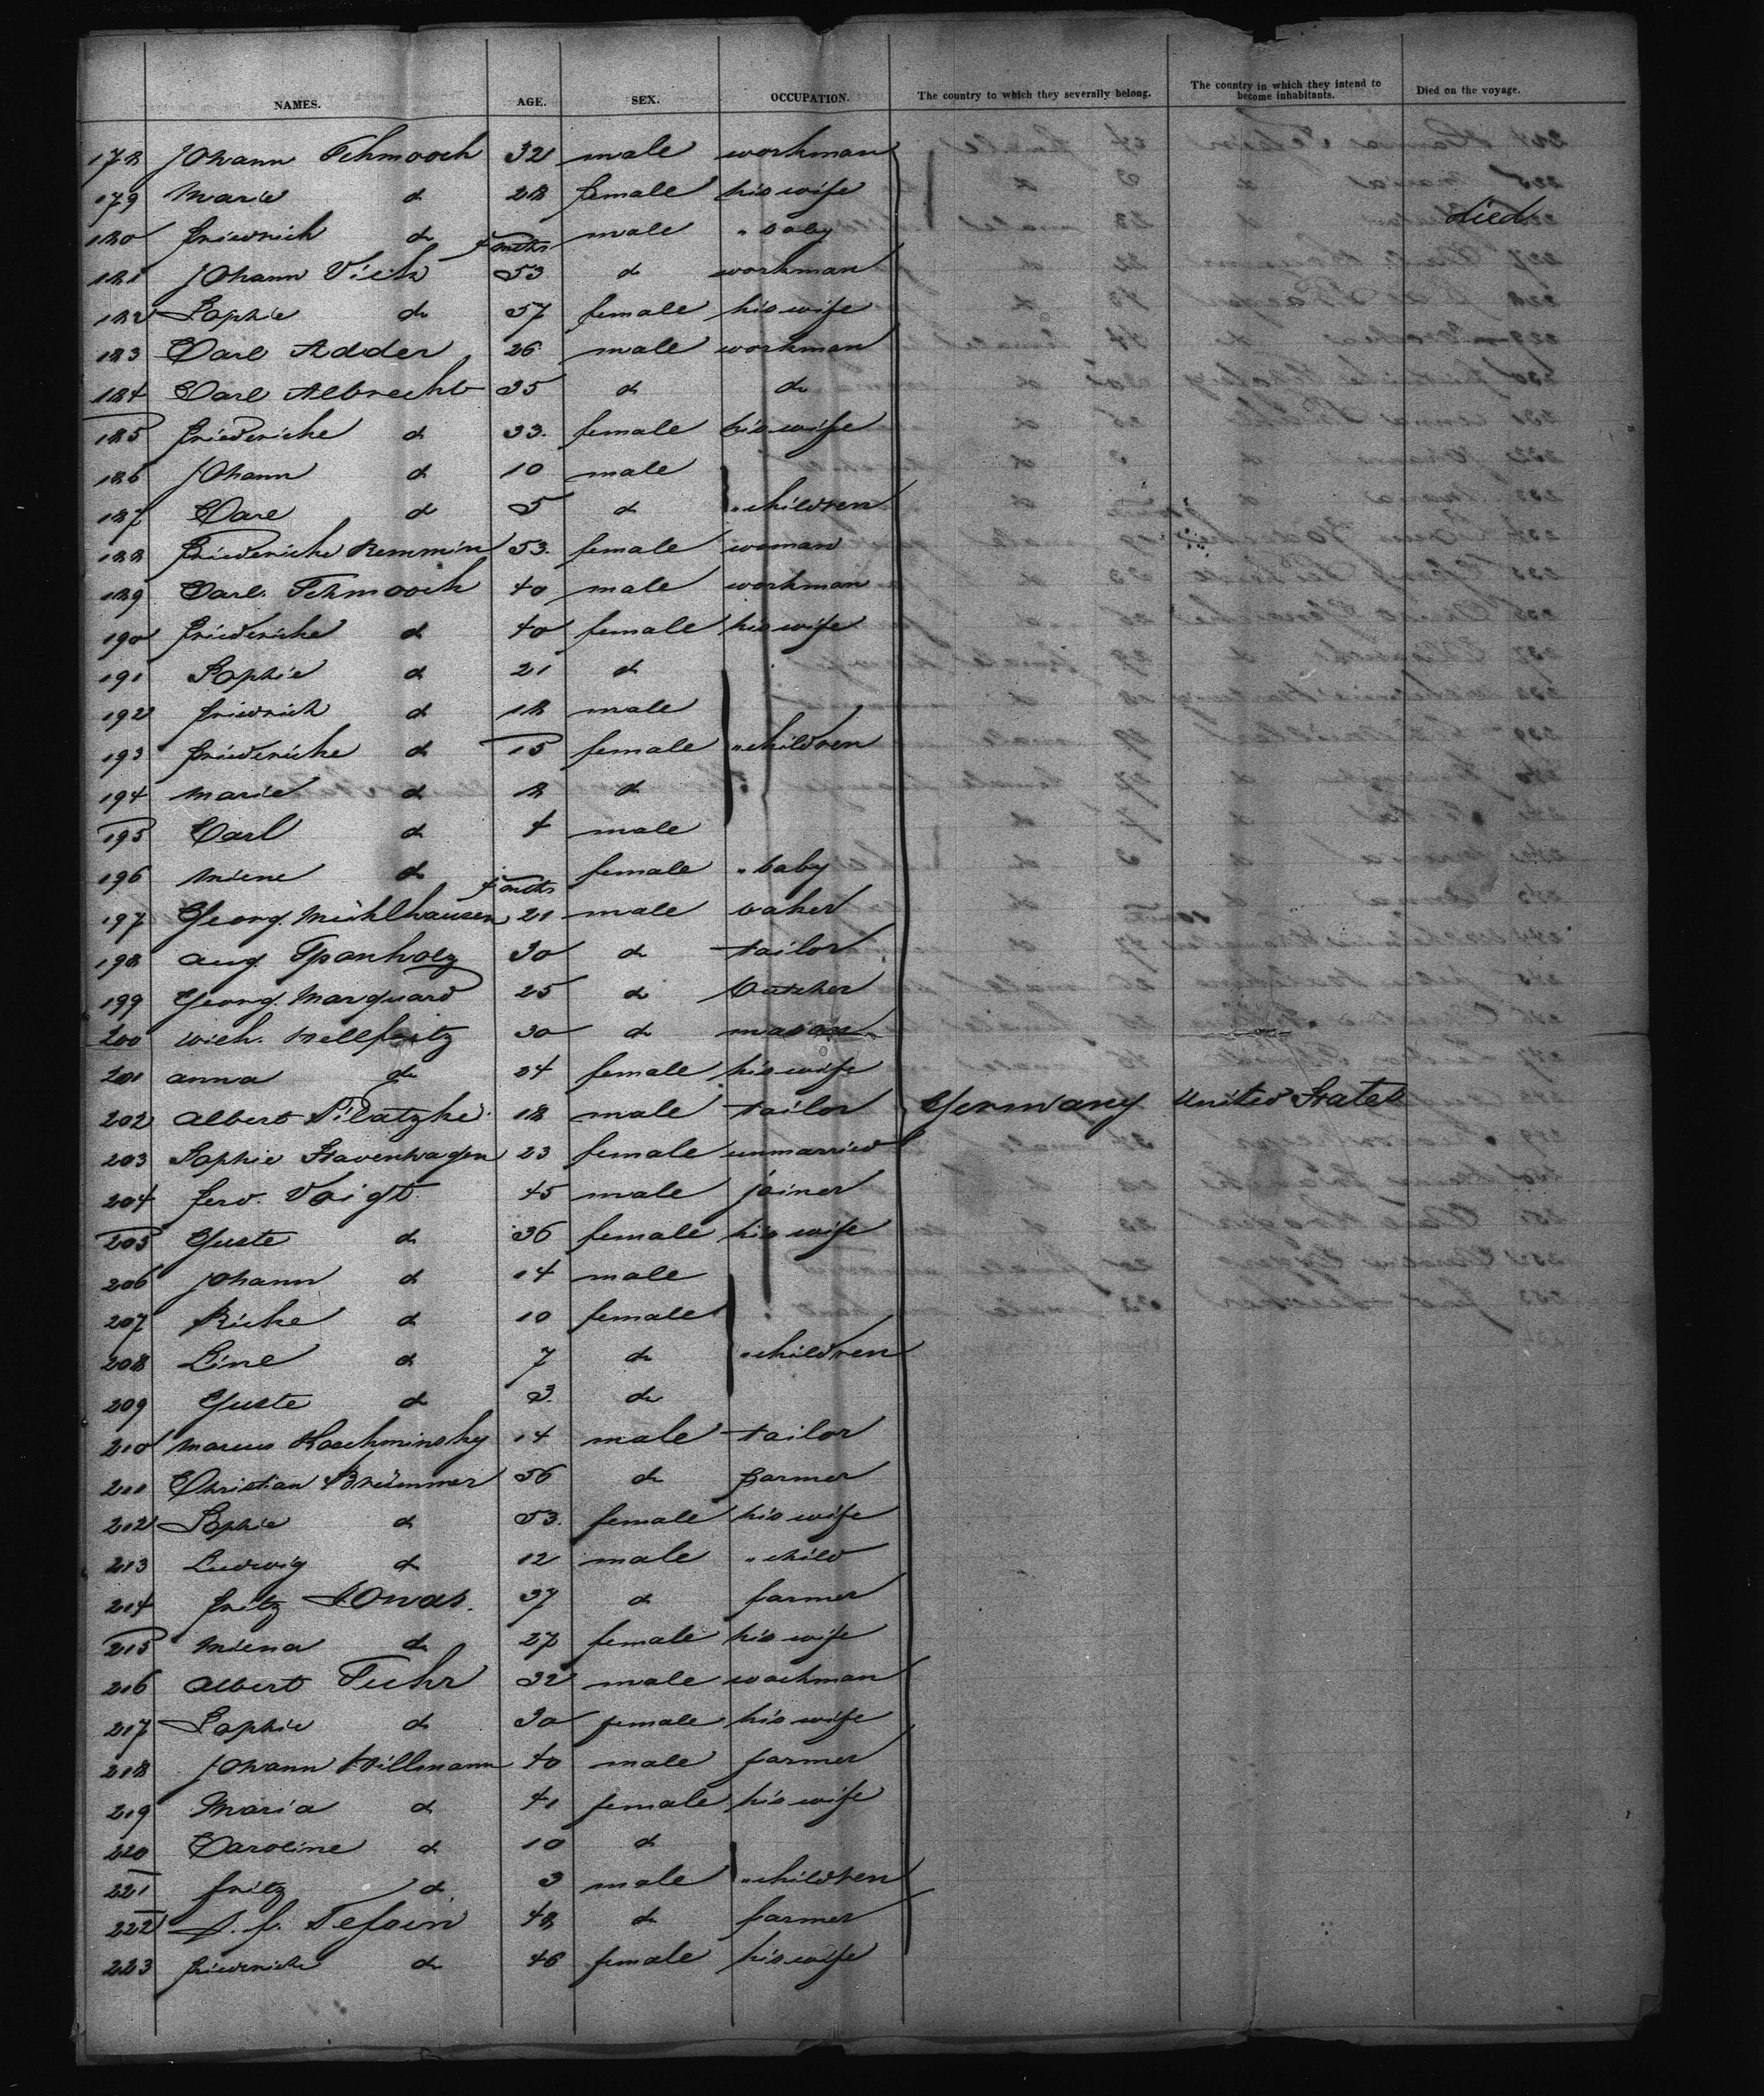 NAMES. AGE. SEX. OCCUPATION. The country to which they severally belong. The country in which they intend to become inhabitants. Died on the voyage.
178 Johann Schmoock 32 male workman
179 Marie d 28 female his wife
180 Friedrich d 4 mths male " baby died
181 Johann Vick 53 d workman
182 Sophie d 57 female his wife
183 Carl Adder 26 male workman
184 Carl Albrecht 35 d d
185 Friederike d 33. female his wife
186 Johann d 10 male
187 Carl d 5 d " children
188 Friederike Remmin 53. female woman
189 Carl Schmoock 40 male workman
190 Friederike d 40 female his wife
191 Sophie d 21 d
192 Friedrich d 18 male
193 Friederike d 15 female " children
194 Marie d 8 d
195 Carl d 4 male
196 Miene d 4 mths female " baby
197 Georg Mühlhausen 21 male baker
198 Aug. Spanholz 30 d tailor
199 Georg Marquard 25 d butcher
200 Wich. 30 d mason
201 Anna d 24 female his wife
202 Albert Pilatzke 18 male tailor Germany United States
203 Sophie Stavenhagen 23 female unmarried
204 Ferd. Voigt 45 male joiner
205 Guste d 36 female his wife
206 Johann d 14 male
207 Rike d 10 female
208 Line d 7 d " children
209 Guste d 3. d
210 Marcus Koschminsky 14 male tailor
211 Christian Brümmer 56 d farmer
212 Sophie d 53. female his wife
213 Ludwig d 12 male " child
214 Fritz Jonas. 37 d farmer
215 Miena d 27 female his wife
216 Albert Fuhr 32 male workman
217 Sophie d 30 female his wife
218 Johann Hillmann 40 male farmer
219 Maria d 41 female his wife
220 Caroline d 10 d
221 Fritz d 3 male " children
222 48 d farmer
223 Friederike d 46 female his wife